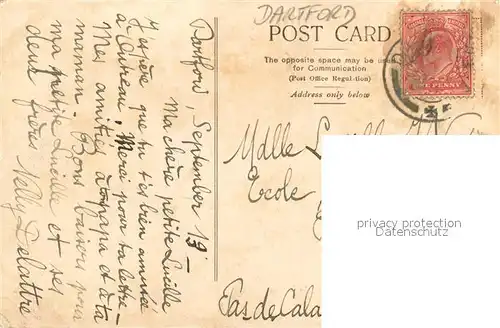 DARTFORD
POST CARD
The opposite space may be used
for Communication.
(Post Office Regulation)
Address only below
ONE PENNY
Dartford September 13 –
Ma chère petite Lucille
J'espère que tu t'es bien amusée
à Merci pour ta lettre –
Mes amitiés à ton papa et à ta
maman – Bons baisers pour
ma petite Lucille et ses
deux frères Nelly Delattre
Mdlle
Ecole
Pas de Cala
privacy protection
Datenschutz